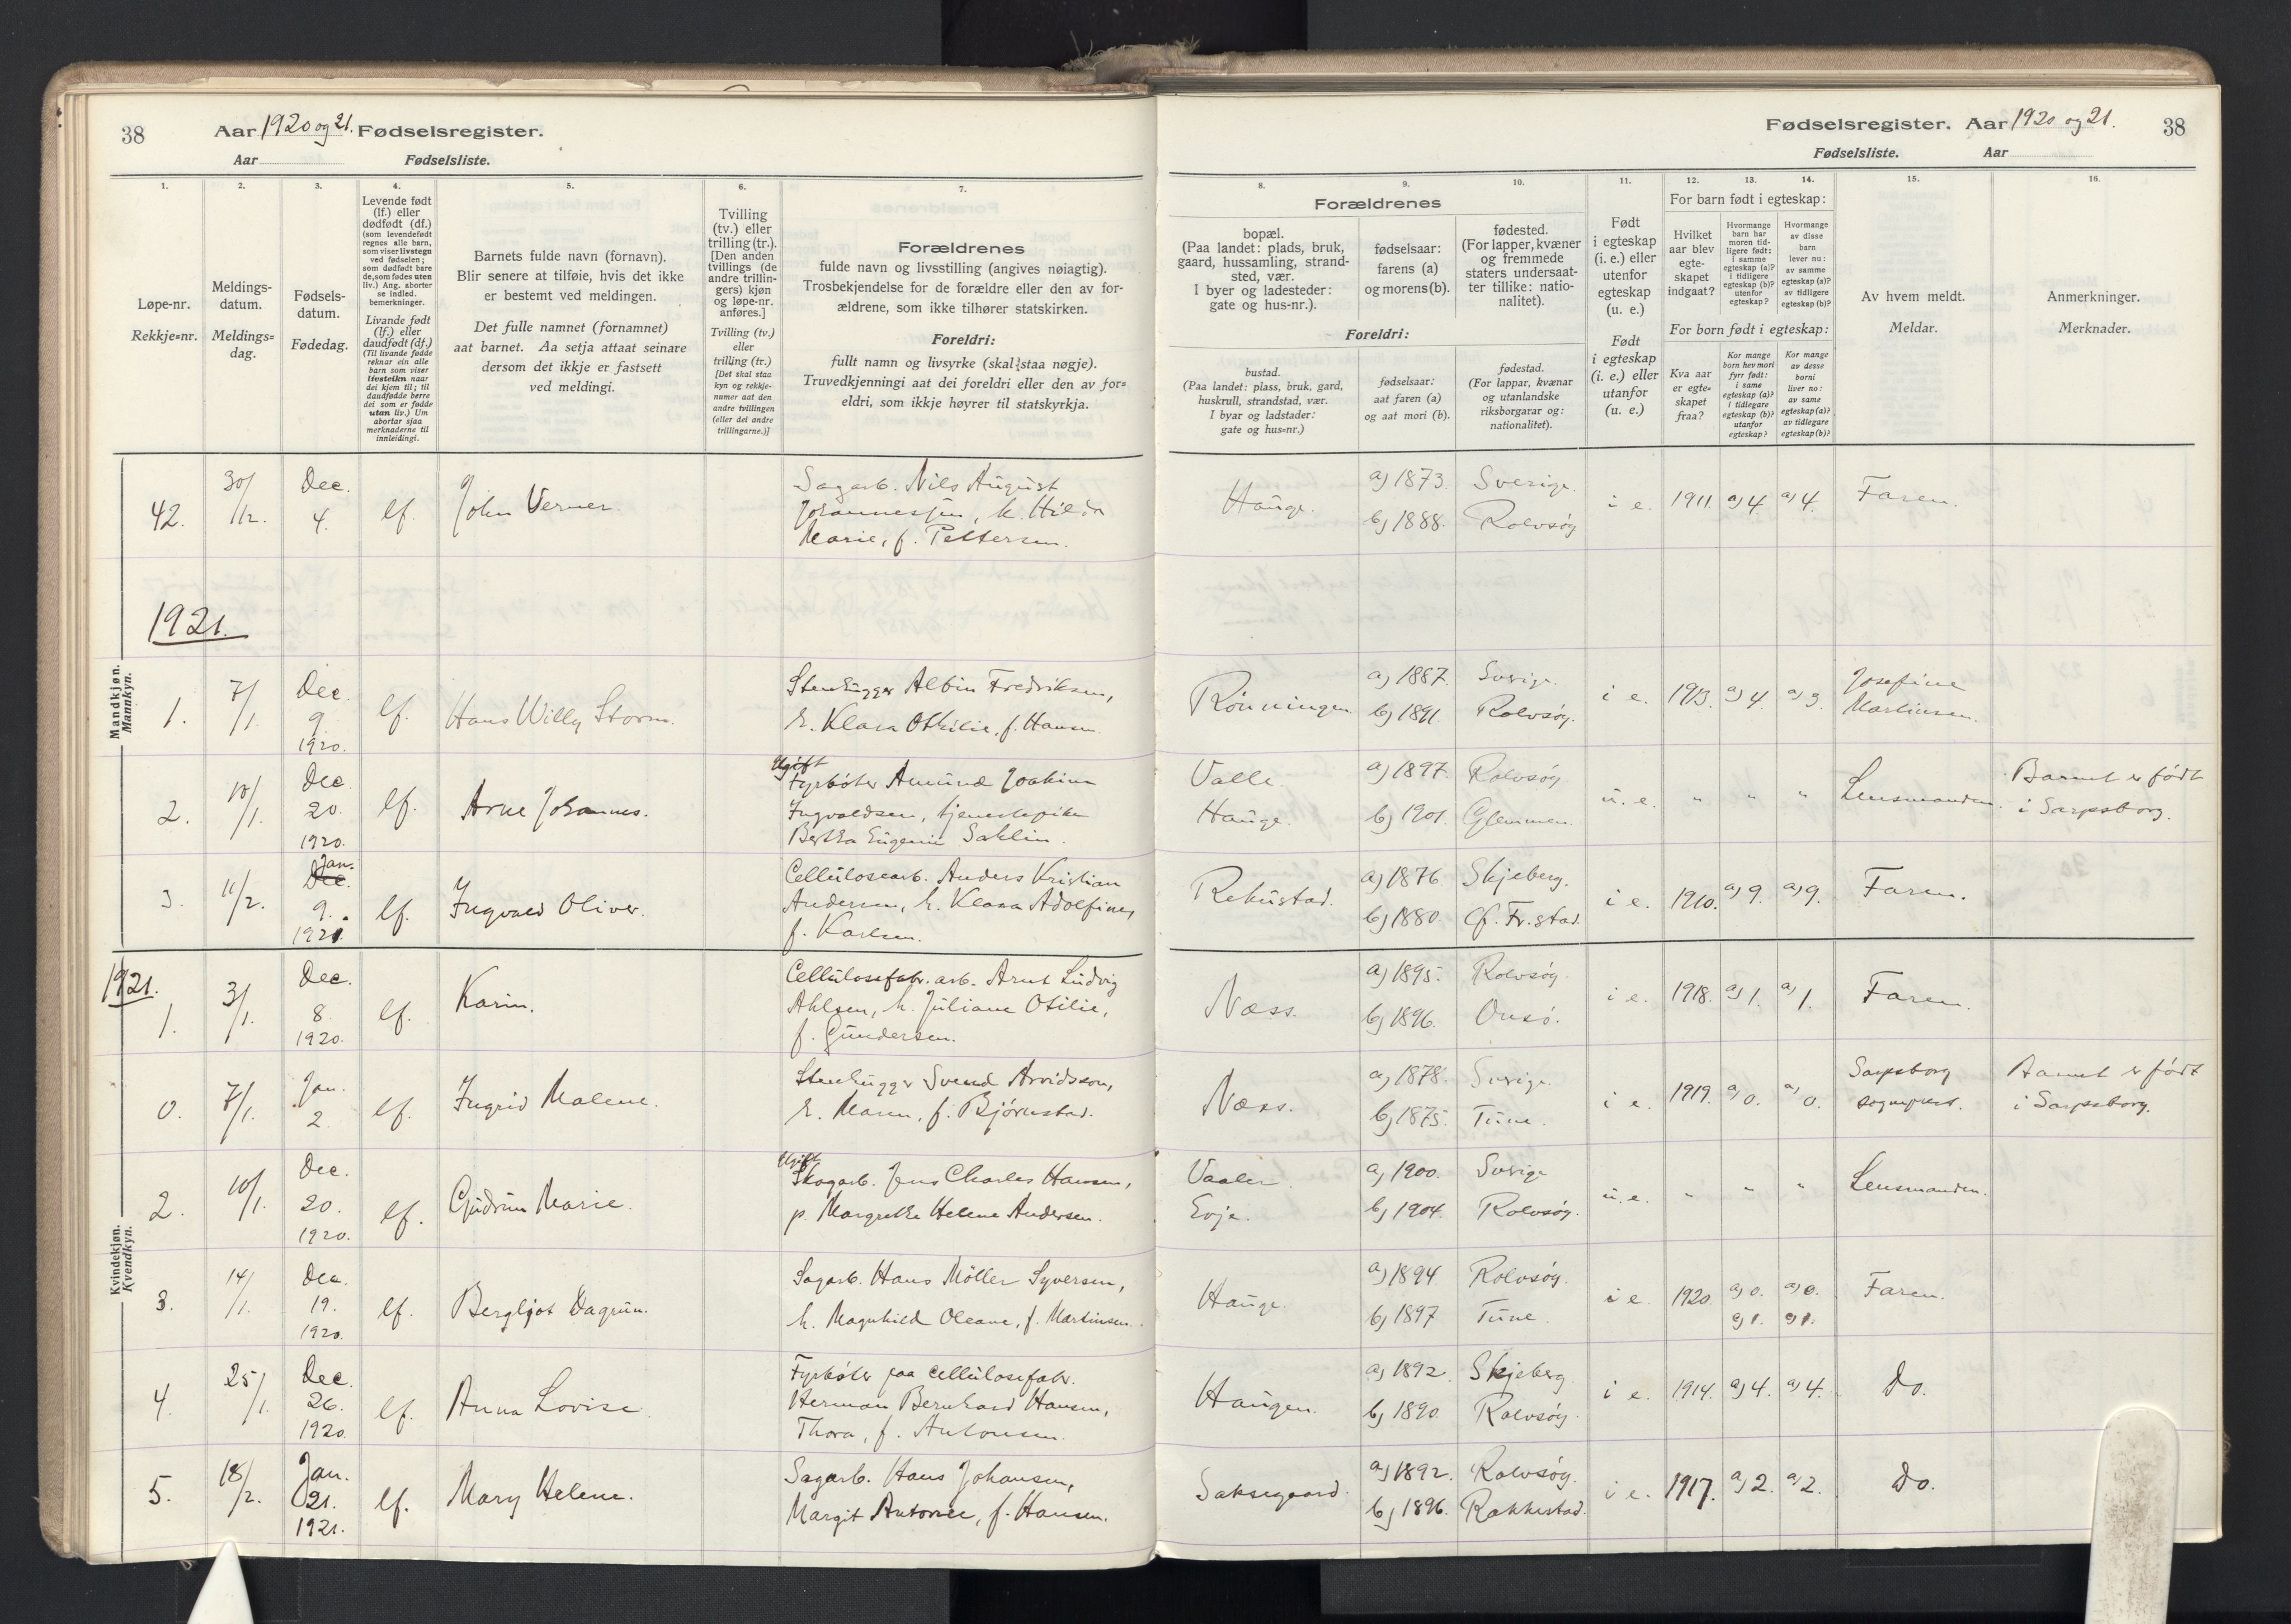 38
Aar 1920 og 21. Fødselsregister.
Aar
Fødselsliste.
1.
2.
3.
4.
5.
6.
7.
Løpe-nr.
Rekkje=nr.
Meldings-
datum.
Meldings=
dag.
Fødsels-
datum.
Fødedag.
Levende født
(lf.) eller
dødfødt (df.)
(som levendefødt
regnes alle barn,
som viser livstegn
ved fødselen;
som dødfødt bare
de, som fødes uten
liv.) Ang. aborter
se indled.
bemerkninger.
Livande født
(lf.) eller
daudfødt (df.)
(Til livande fødde
reknar ein alle
barn som viser
livsteikn naar
dei kjem til; til
daudfødde berre
dei som er fødde
utan liv.) Um
abortar sjaa
merknaderne til
innleidingi.
Barnets fulde navn (fornavn).
Blir senere at tilføie, hvis det ikke
er bestemt ved meldingen.
Det fulle namnet (fornamnet)
aat barnet. Aa setja attaat seinare
dersom det ikkje er fastsett
ved meldingi.
Tvilling
(tv.) eller
trilling (tr.).
[Den anden
tvillings (de
andre trillin-
gers) kjøn
og løpe-nr.
anføres.]
Tvilling (tv.)
eller
trilling (tr.)
[Det skal staa
kyn og rekkje-
numer aat den
andre tvillingen
(eller dei andre
trillingarne.)]
Forældrenes
fulde navn og livsstilling (angives nøiagtig).
Trosbekjendelse for de forældre eller den av for-
ældrene, som ikke tilhører statskirken.
Foreldri:
fullt namn og livsyrke (skal staa nøgje).
Truvedkjenningi aat dei foreldri eller den av for=
eldri, som ikkje høyrer til statskyrkja.
Mandkjøn.
Mannkyn.
42. 30/12. Dec. 4. lf. John Verner. Sagarb. Nils August
Johannessen, h. Hilda
Marie, f. Pettersen.
1921.
1. 7/1. Dec. 9. 1920. lf. Hans Willy Storm. Stenhugger Albin Fredriksen,
h. Klara Othilie, f. Hansen.
2. 10/1. Dec. 20. 1920. lf. Arne Johannes. Ugift
Fyrbøter Amund Joakim
Ingvaldsen, tjenestepike
Bertha Eugenie Sahlin.
3. 11/2. Dec. Jan. 9. 1921. lf. Ingvald Oliver. Cellulosearb. Anders Kristian
Andersen, h. Klara Adolfine,
f. Karlsen.
Kvindekjøn.
Kvendkyn.
1921.
1. 3/1. Dec. 8. 1920. lf. Karin. Cellulosefabr. arb. Arnt Ludvig
Ahlsen, h. Juliane Otilie,
f. Gundersen.
0. 7/1. Jan. 2. lf. Ingrid Malene. Stenhugger Svend Arvidsson,
h. Maren, f. Bjørnstad.
2. 10/1. Dec. 20. 1920. lf. Gudrun Marie. Ugift
Skogarb. Jens Charles Hansen,
p. Margrethe Helene Andersen.
3. 14/1. Dec. 19. 1920. lf. Bergljot Dagrun. Sagarb. Hans Möller Syversen,
h. Magnhild Oleane, f. Martinsen.
4. 25/1. Dec. 26. 1920. lf. Anna Lovise. Fyrbøter paa cellulosefabr.
Herman Bernhard Hansen,
Thora, f. Antonsen.
5. 18/2. Jan. 21. 1921. lf. Mary Helene. Sagarb. Hans Johansen,
Margit Antonie, f. Hansen.
Fødselsregister. Aar 1920 og 21.
38
Fødselsliste.
Aar
8.
9.
10.
11.
12.
13.
14.
15.
16.
Forældrenes
bopæl.
(Paa landet: plads, bruk,
gaard, hussamling, strand-
sted, vær.
I byer og ladesteder:
gate og hus-nr.).
fødselsaar:
farens (a)
og morens (b).
fødested.
(For lapper, kvæner
og fremmede
staters undersaat-
ter tillike: natio-
nalitet).
Foreldri:
bustad.
(Paa landet: plass, bruk, gard,
huskrull, strandstad, vær.
I byar og ladstader:
gate og hus=nr.)
fødselsaar:
aat faren (a)
og aat mori (b).
fødestad.
(For lappar, kvænar
og utanlandske
riksborgarar og:
nationalitet).
Født
i egteskap
(i. e.) eller
utenfor
egteskap
(u. e.)
Født
i egteskap
(i. e.) eller
utanfor
egteskap
(u. e.)
For barn født i egteskap:
Hvilket
aar blev
egte-
skapet
indgaat?
Hvormange
barn har
moren tid-
ligere født:
i samme
egteskap (a)?
i tidligere
egteskap (b)?
utenfor
egteskap?
Hvormange
av disse
barn
lever nu:
av samme
egteskap (a)?
av tidligere
egteskap (b)?
For born født i egteskap:
Kva aar
er egte=
skapet
fraa?
Kor mange
born hev mori
fyrr født:
i same
egteskap (a)?
i tidlegare
egteskap (b)?
utanfor
egteskap?
Kor mange
av desse
borni
liver no:
av same
egteskap (a)?
av tidlegare
egteskap (b)?
Av hvem meldt.
Meldar.
Anmerkninger.
Merknader.
Hauge. a) 1873. Sverige. i e. 1911. a) 4. a) 4. Faren.
b) 1888. Rolvsøy
Rönningen. a) 1887. Sverige. i e. 1913. a) 4. a) 3. Josefine
b) 1891. Rolvsøy. Martinsen.
Valle. a) 1897. Rolvsøy u. e. " " " Lensmanden. Barnet er født
Hauge. b) 1901. Glemmen. i Sarpsborg.
Rekustad. a) 1876. Skjeberg. i e. 1910. a) 9. a) 9. Faren.
b) 1880. Gl. Fr.stad.
Næss. a) 1895. Rolvsøy. i e. 1918. a) 1. a) 1. Faren.
b) 1896. Onsø.
Næss. a) 1878. Sverige. i e. 1919. a) 0. a) 0. Sarpsborg
b) 1875. Tune. sogneprest. Barnet er født
i Sarpsborg.
Vaaler. a) 1900. Sverige u. e. " " " Lensmanden.
Evje. b) 1904. Rolvsøy.
Hauge a) 1894. Rolvsøy. i e. 1920. a) 0. a) 0. Faren.
b) 1897 Tune. 1. 1.
Haugen. a) 1892. Skjeberg. i e. 1914. a) 4. a) 4. Do.
b) 1890. Rolvsøy.
Saksegaard. a) 1892. Rolvsøy. i e. 1917. a) 2. a) 2. Do.
b) 1896. Rakkestad.